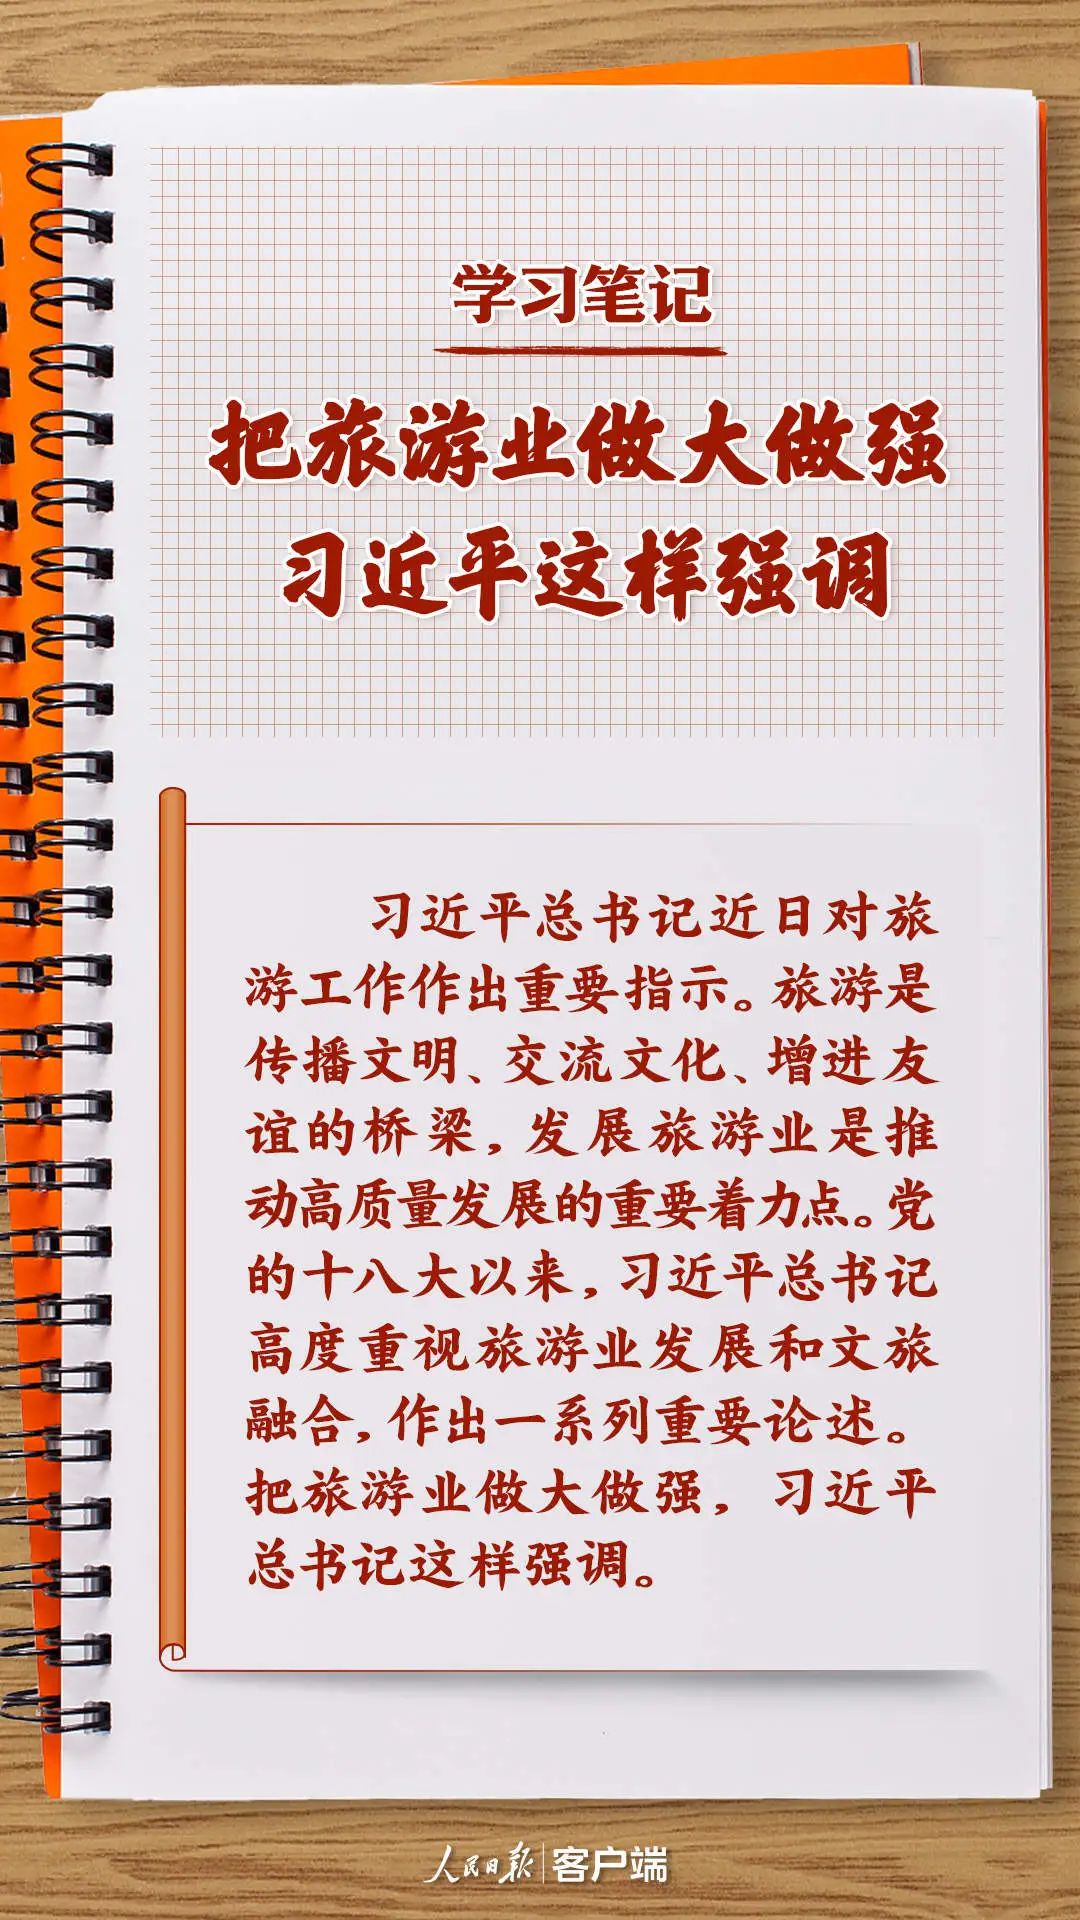 学习笔记
把旅游业做大做强
习近平这样强调
习近平总书记近日对旅
游工作作出重要指示。旅游是
传播文明、交流文化、增进友
谊的桥梁，发展旅游业是推
动高质量发展的重要着力点。党
的十八大以来，习近平总书记
高度重视旅游业发展和文旅
融合，作出一系列重要论述。
把旅游业做大做强，习近平
总书记这样强调。
人民日报|客户端